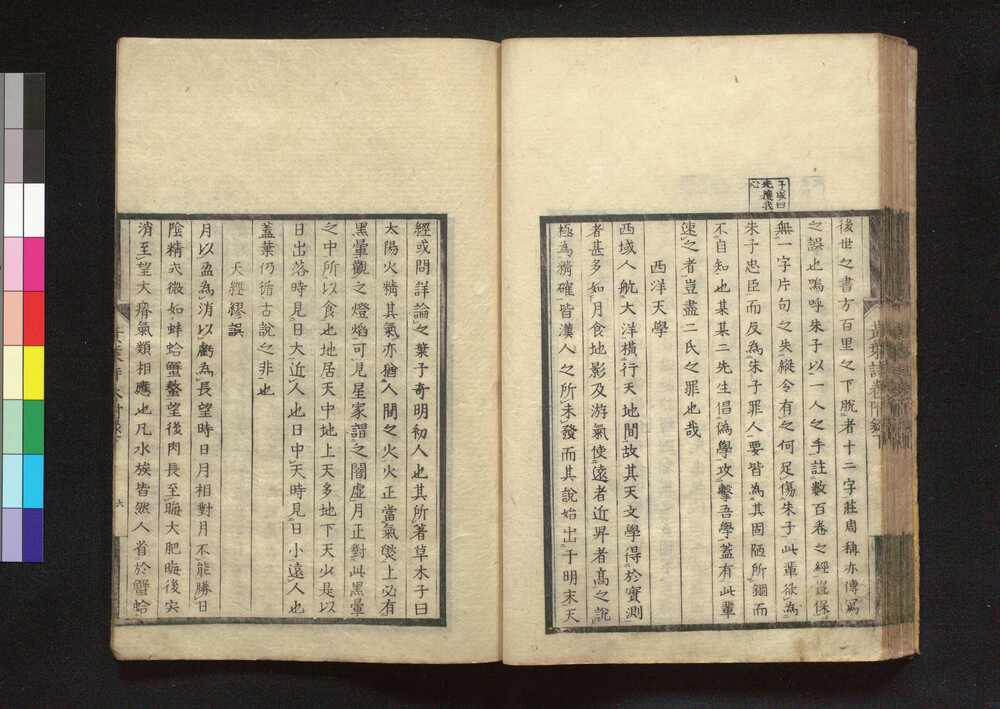 子成曰
先獲我
心
後世之書方百里之下脫者十二字莊周稱亦傳寫
之誤也嗚呼朱子以一人之手註數百卷之經豈保
無一字片句之失縱令有之何足傷朱子此輩欲為
朱子忠臣而反為朱子罪人要皆為其固陋所錮而
不自知也某某二先生倡偽學攻擊吾學蓋有此輩
速之者豈盡二氏之罪也哉
西洋天學
西域人航大洋橫行天地間故其天文學得於實測
者甚多如月食地影及游氣使遠者近昇者高之說
極為精確皆漢人之所未發而其說始出于明末天
經或問詳論之葉子奇明初人也其所著草木子曰
太陽火精其氣亦猶人間之火火正當氣燄上必有
黑暈觀之燈焰可見星家謂之闇虛月正對此黑暈
之中所以食也地居天中地上天多地下天少是以
日出落時見日大近人也日中天時見日小遠人也
蓋葉仍循古說之非也
天經繆誤
月以盈為消以虧為長望時日月相對月不能勝日
陰精衣微如蚌蛤蟹螯望後肉長至晦大肥晦後實
消至望大瘠氣類相應也凡水族皆然人省於蟹蛤
六